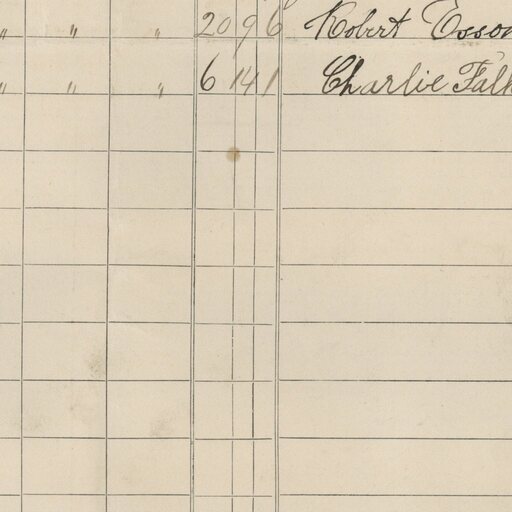 " " " 20 9 6 Robert Esson
" " " 6 14 1 Charlie Falk